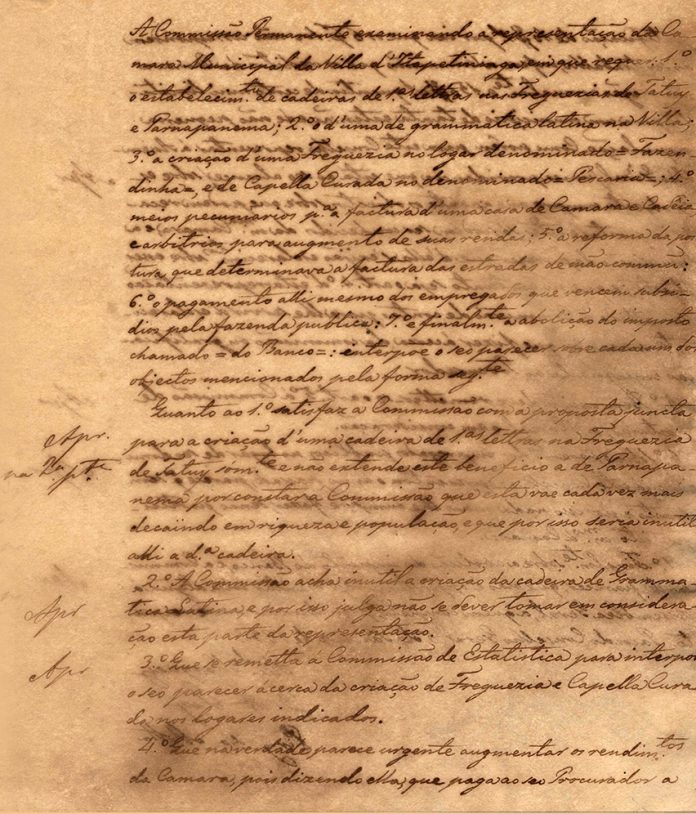 A Commissão Permanente examinando a representação da Ca-
mara Municipal da Villa d'Itapetininga, em que requer: 1.º
o estabelecim.to de cadeiras de 1.as letras nas Freguezias de Tatuy
e Parnapanema; 2.º o d'uma de grammatica latina na Villa;
3.º a criação d'uma Freguezia no logar denominado = Fazen
dinha =, e de Capella Curada no denominado = Percaria =; 4.º
meios pecuniarios p.a a factura d'uma casa de Camara e Cadêa
e arbitrios para augmento de suas rendas; 5.º a reforma da pos
tura, que determinava a factura das estradas de mão commũ;
6.º o pagamento alli mesmo dos empregados que vencem subsi-
dios pela fazenda publica; 7.º e finalm.te a abolição do imposto
chamado = do Banco =: interpõe o seo parecer sobre cada um dos
objectos mencionados pela forma seg.te
Quanto ao 1.º satisfaz a Commissão com a proposta juncta
Apr.
para a criação d'uma cadeira de 1.as letras na Freguezia
na 2.a p.te
de Tatuy sòm.te e não extende este beneficio a de Parnapa
nema por constar a Commissão que esta vae cada vez mais
decaindo em riqueza e população, e que por isso seria inutil
alli a d.a cadeira.
2.º A Commissão acha inutil a criação da cadeira de Gramma
Apr
tica Latina, e por isso julga não se dever tomar em considera
ção esta parte da representação.
3.º Que se remetta á Commissão de Estatistica para interpor
Apr
o seo parecer ácerca da criação de Freguezia e Capella Cura
da nos logares indicados.
4.º Que na verdade parece urgente augmentar os rendim.tos
da Camara, pois dizendo ella, que paga ao seo Procurador a